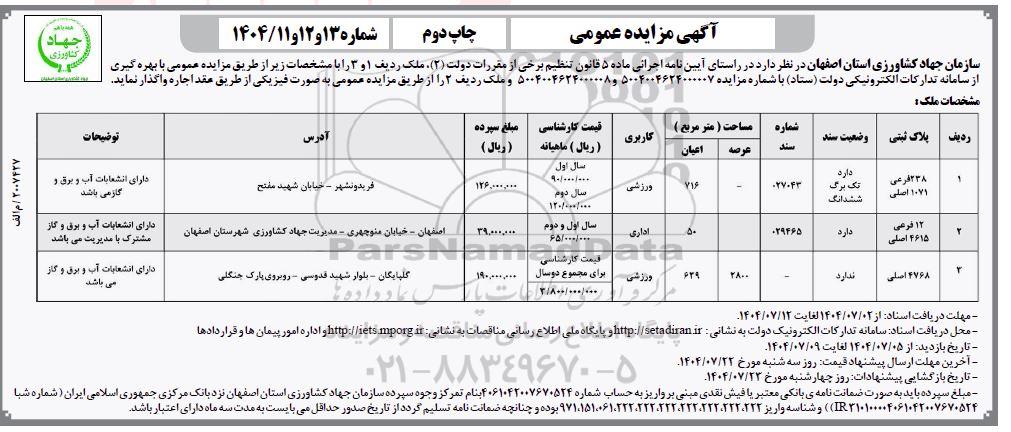 آگهی مزایده عمومی
چاپ دوم
شماره ۱۳و۱۲و۱۴۰۴/۱۱
همه با هم
جهاد
کشاورزی
سازمان جهاد کشاورزی استان اصفهان
سازمان جهاد کشاورزی استان اصفهان در نظر دارد در راستای آیین نامه اجرائی ماده ۵ قانون تنظیم برخی از مقررات دولت (۲)، ملک ردیف ۱ و ۳ را با مشخصات زیر از طریق مزایده عمومی با بهره گیری
از سامانه تدارکات الکترونیکی دولت (ستاد) با شماره مزایده ۵۰۰۴۰۰۴۶۲۴۰۰۰۰۰۷ و ۵۰۰۴۰۰۴۶۲۴۰۰۰۰۰۸ و ملک ردیف ۲ را از طریق مزایده عمومی به صورت فیزیکی از طریق عقد اجاره واگذار نماید.
مشخصات ملک:
ردیف | پلاک ثبتی | وضعیت سند | شماره سند | مساحت ( متر مربع ) عرصه | اعیان | کاربری | قیمت کارشناسی ( ریال ) ماهیانه | مبلغ سپرده ( ریال ) | آدرس | توضیحات
۱ | ۲۳۸فرعی ۱۰۷۱ اصلی | دارد تک برگ ششدانگ | ۰۲۷۰۴۳ | - | ۷۱۶ | ورزشی | سال اول ۹۰/۰۰۰/۰۰۰ سال دوم ۱۲۰/۰۰۰/۰۰۰ | ۱۲۶,۰۰۰,۰۰۰ | فریدونشهر - خیابان شهید مفتح | دارای انشعابات آب و برق و گاز می باشد
۲ | ۱۲ فرعی ۴۶۱۵ اصلی | دارد | ۰۲۹۴۶۵ | ۵۰ | اداری | سال اول و دوم ۶۵/۰۰۰/۰۰۰ | ۳۹,۰۰۰,۰۰۰ | اصفهان - خیابان منوچهری - مدیریت جهاد کشاورزی شهرستان اصفهان | دارای انشعابات آب و برق و گاز مشترک با مدیریت می باشد
۳ | ۴۷۶۸ اصلی | ندارد | - | ۲۸۰۰ | ۶۳۹ | ورزشی | قیمت کارشناسی برای مجموع دوسال ۳/۸۰۰/۰۰۰/۰۰۰ | ۱۹۰,۰۰۰,۰۰۰ | گلپایگان - بلوار شهید قدوسی - روبروی پارک جنگلی | دارای انشعابات آب و برق و گاز می باشد
۲۰۰۷۴۳۷ /م الف
- مهلت دریافت اسناد: از ۱۴۰۴/۰۷/۰۲ لغایت ۱۴۰۴/۰۷/۱۲.
- محل دریافت اسناد: سامانه تدارکات الکترونیک دولت به نشانی : http://setadiran.ir و پایگاه ملی اطلاع رسانی مناقصات به نشانی: http://iets.mporg.ir و اداره امور پیمان ها و قراردادها
- تاریخ بازدید: از ۱۴۰۴/۰۷/۰۵ لغایت ۱۴۰۴/۰۷/۰۹.
- آخرین مهلت ارسال پیشنهاد قیمت: روز سه شنبه مورخ ۱۴۰۴/۰۷/۲۲.
- تاریخ بازگشایی پیشنهادات: روز چهارشنبه مورخ ۱۴۰۴/۰۷/۲۳.
- مبلغ سپرده باید به صورت ضمانت نامه ی بانکی معتبر یا فیش نقدی مبنی بر واریز به حساب شماره ۴۰۶۱۰۴۲۰۰۷۶۷۰۵۲۴ بنام تمرکز وجوه سپرده سازمان جهاد کشاورزی استان اصفهان نزد بانک مرکزی جمهوری اسلامی ایران ( شماره شبا
بوده و چنانچه ضمانت نامه تسلیم گردد از تاریخ صدور حداقل می بایست به مدت سه ماه دارای اعتبار باشد.
ParsNamadData
پایگاه اطلاع رسانی مناقصه و مزایده
۰۲۱-۸۸۳۴۹۶۷۰-۵